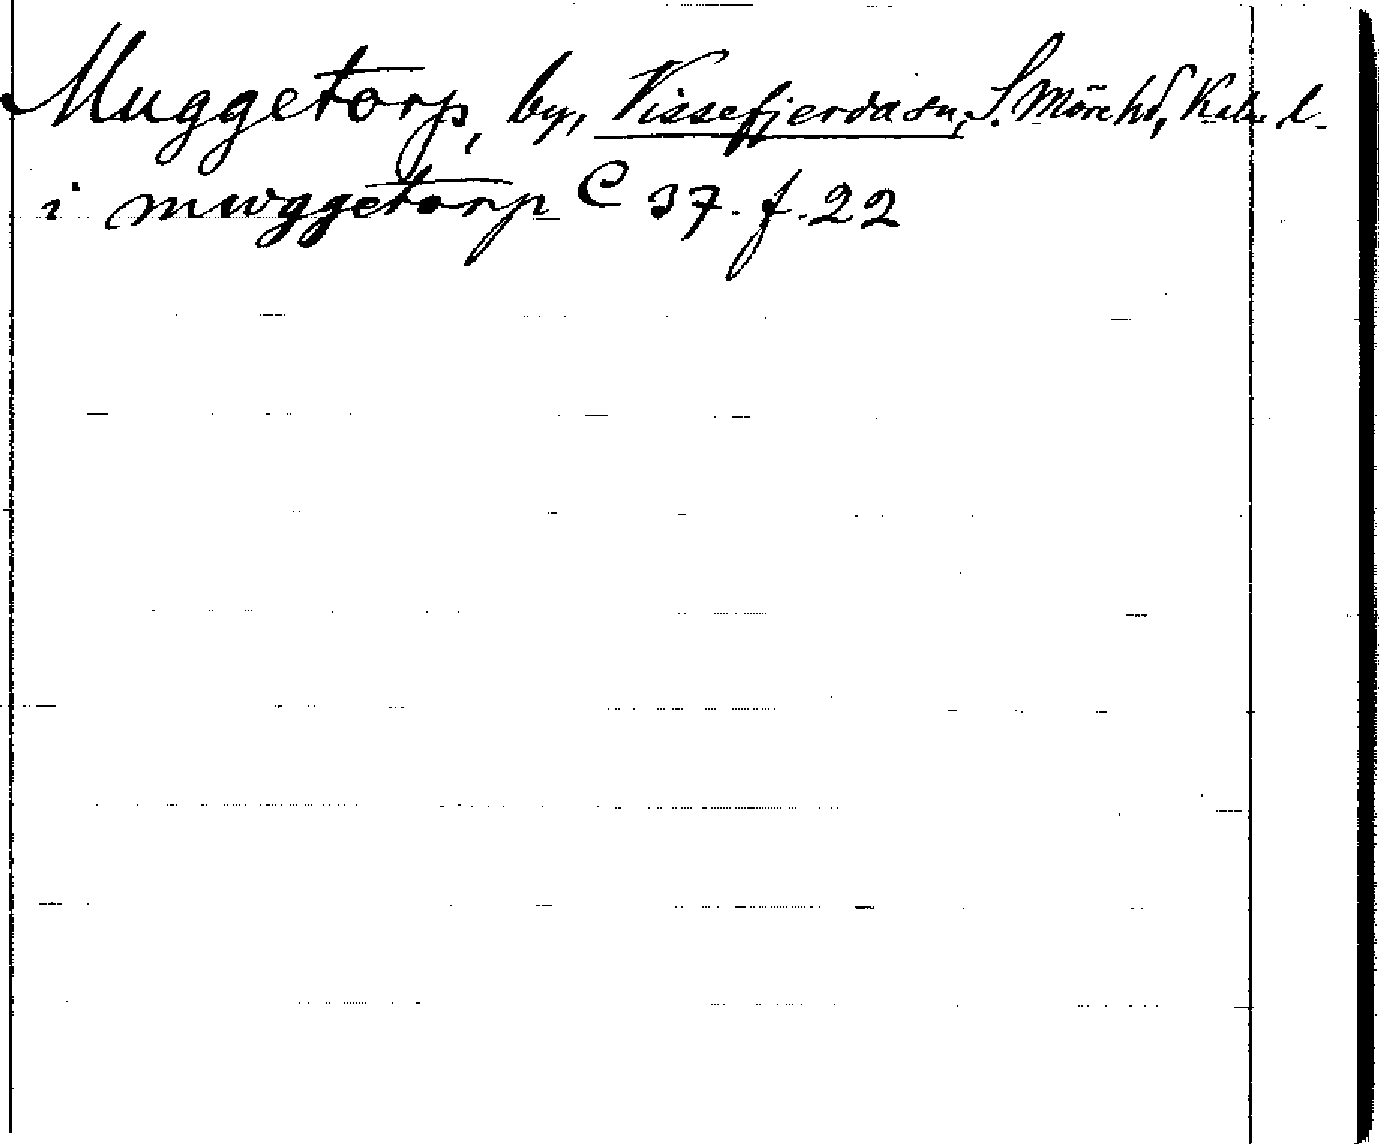 Muggetorp, by, Vissefjerda sn, S. Möre hd, Kalm. l.
i mwggetorp C 37. f. 22